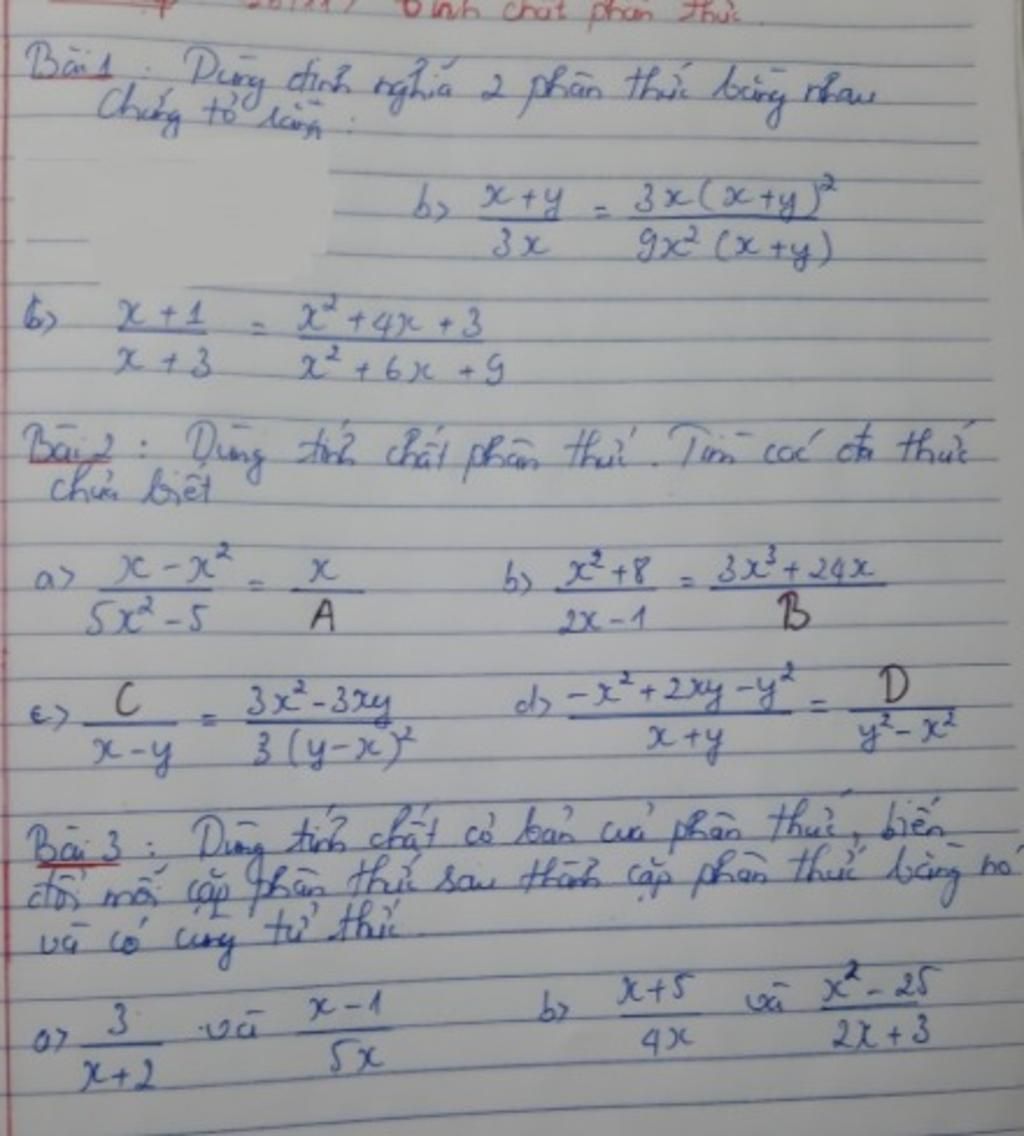 tính chất phân thức
Bài 1 : Dùng định nghĩa 2 phân thức bằng nhau
chứng tỏ rằng :
b> (x+y)/(3x) = (3x(x+y)²)/(9x²(x+y))
b> (x+1)/(x+3) = (x²+4x+3)/(x²+6x+9)
Bài 2 : Dùng tính chất phân thức. Tìm các đa thức
chưa biết
a> (x-x²)/(5x²-5) = x/A b> (x²+8)/(2x-1) = (3x³+24x)/B
c> C/(x-y) = (3x²-3xy)/(3(y-x)²) d> (-x²+2xy-y²)/(x+y) = D/(y²-x²)
Bài 3 : Dùng tính chất cơ bản của phân thức, biến
đổi mỗi cặp phân thức sau thành cặp phân thức bằng nó
và có cùng tử thức
a> 3/(x+2) và (x-1)/(5x) b> (x+5)/(4x) và (x²-25)/(2x+3)